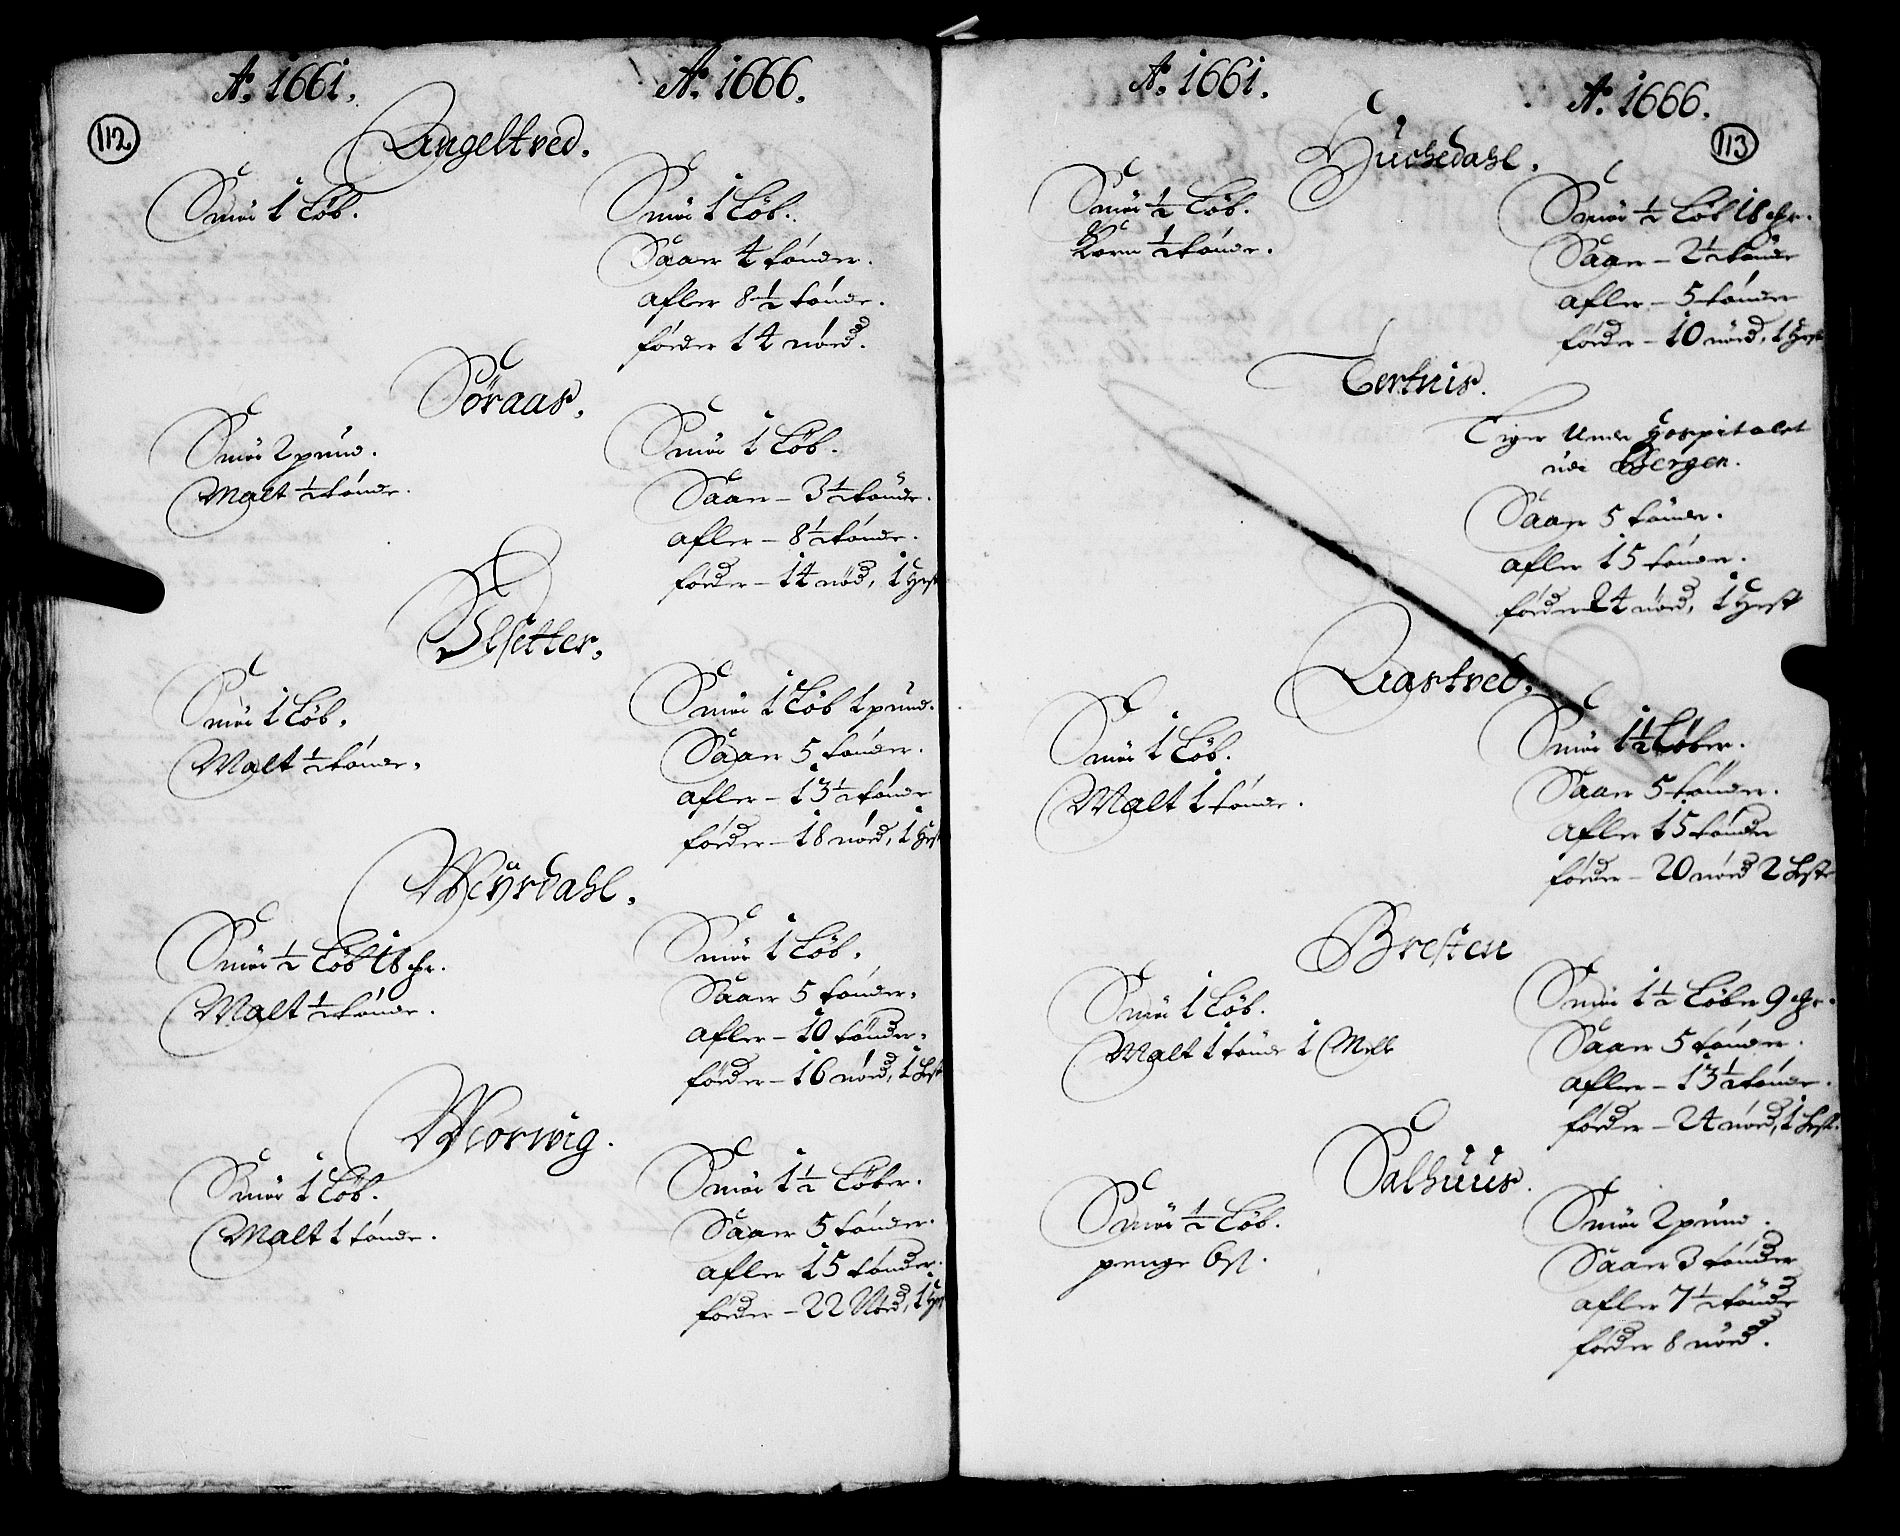 112
Ao. 1661.
Ao. 1666.
Langeltved.
Smör 1 Löb.
Smör 1 Löb.
Saaer 4 tönder.
afler 8 1/2 tönde.
föeder 14 nöed.
Söraas.
Smör 2 pund.
Malt 1/2 tönde.
Smör 1 Löb.
Saaer – 3 1/2 tönde.
afler – 8 1/2 tönde.
föeder – 14 nöd, 1 Hest
Elsetter.
Smör 1 Löb.
Malt 1/2 tönde.
Smör 1 Löb 1 pund.
Saaer 5 tönder.
afler – 13 1/2 tönde
föeder – 18 nöed, 1 Hest
Meÿrdahl.
Smör 1/2 Löb 18 mr.
Malt 1/2 tönde.
Smör 1 Löb.
Saaer 5 tönder.
afler – 10 tönder.
föeder – 16 nöed, 1 Hest
Morvig.
Smör 1 Löb.
Malt 1 tönde.
Smör 1 1/2 Löber.
Saaer 5 tönder.
afler 15 tönder.
föeder – 22 Nöed, 1 Hest
113
Ao. 1661.
Ao. 1666.
Hüchedahl.
Smör 1/2 Löb.
Korn 1/2 tönde.
Smör 1/2 Löb 18 mr.
Saaer – 2 1/2 tönde
afler – 5 tönder
föeder – 10 nöed, 1 Hest
Tertnis.
Liger Under Hospitalet
udi Bergen.
Saaer 5 tönder.
afler 15 tönder.
föeder 24 nöed, 1 Hest
Aastved.
Smör 1 Löb.
Malt 1 tönde.
Smör 1 1/2 Löber.
Saaer 5 tönder.
afler 15 tönder
föeder – 20 nöed 2 Heste
Bresten
Smör 1 Löb.
Malt 1 tönde 1 Mele
Smör 1 1/2 Löber 9 mr.
Saaer 5 tönder.
afler – 13 1/2 tönde.
föeder – 24 nöed, 1 Hest.
Salhuus.
Smör 1/2 Löb.
penge 6 ß.
Smör 2 pund.
Saaer 3 tönder
afler 7 1/2 tönde
föeder 8 nöed.